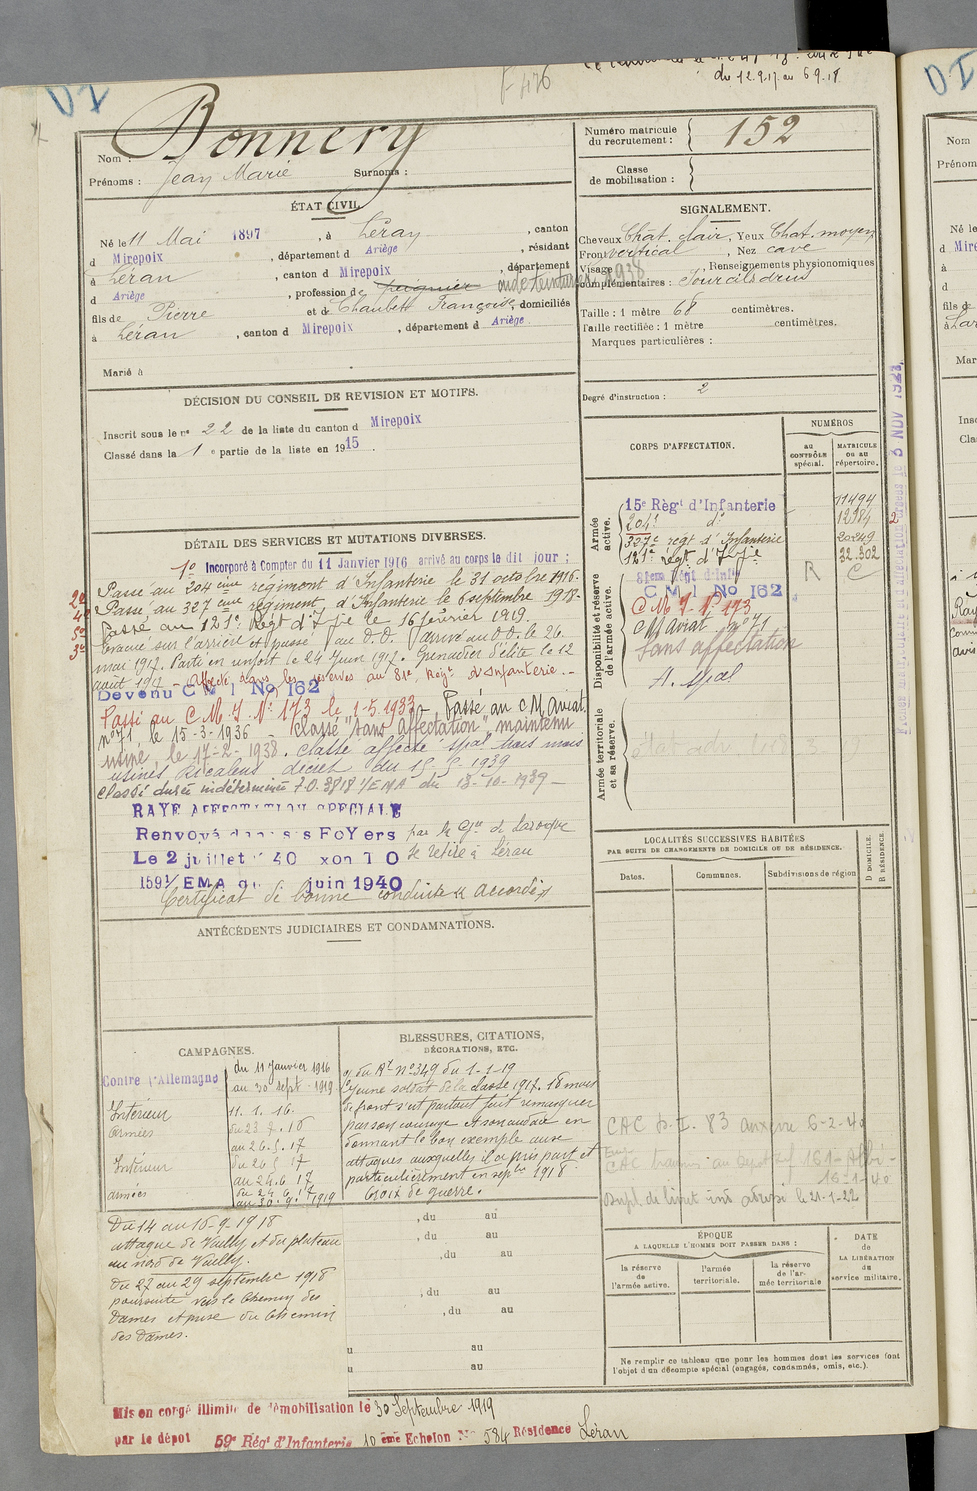 du 12.9.17 au 6 9.18
Bonnery
Nom :
Prénoms : Jean Marie Surnoms :
Numéro matricule du recrutement : 152
Classe de mobilisation :
ÉTAT CIVIL.
Né le 11 Mai 1897, à Léran, canton
d Mirepoix, département d Ariège, résidant
à Léran, canton d Mirepoix, département
d Ariège, profession de peignier 1938
fils de Pierre et de Chaubet Françoise, domiciliés
à Léran, canton d Mirepoix, département d Ariège.
Marié à
SIGNALEMENT.
Cheveux Chât. clair, Yeux Chat. moyen
Front vertical, Nez cave
Visage, Renseignements physionomiques
complémentaires : Sourcils drus
Taille : 1 mètre 68 centimètres.
Taille rectifiée : 1 mètre centimètres.
Marques particulières :
Degré d'instruction : 2
DÉCISION DU CONSEIL DE REVISION ET MOTIFS.
Inscrit sous le n° 22 de la liste du canton d Mirepoix
Classé dans la 1e partie de la liste en 1915.
DÉTAIL DES SERVICES ET MUTATIONS DIVERSES.
1° Incorporé à Compter du 11 Janvier 1916 arrivé au corps le dit jour ;
Passé au 204 ème régiment d'Infanterie le 31 octobre 1916.
Passé au 327 ème régiment d'Infanterie le 6 septembre 1918.
Passé au 121e Régt d'Ifie le 16 février 1919.
Evacué sur l'arrière et passé au D.D. arrivé au D.D. le 26
mai 1917. Parti en renfort le 24 Juin 1917. Grenadier d'élite le 12
août 1917 - Affecté dans les réserves au 81e Régt d'Infanterie.
Devenu C M I No 162
Passé au C. M. I. No 173 le 1-5-1933 - Passé au C M Aviat.
n° 71 le 15-3-1936 - Classé "Sans Affectation" maintenu
usine, le 17-2-1938. Classé affecté spial hors mais
usines Ricalens décret du 15-5-1939
Classé durée indéterminée F.O. 3818 1/EMA du 13-10-1939
RAYE AFFECTATION SPECIALE
Renvoyé dans ses FoYers par la Cie de Laroque
Le 2 juillet 40 se retire à Léran
1591/EMA du juin 1940
Certificat de bonne conduite "Accordé"
CORPS D'AFFECTATION.
NUMÉROS
AU CONTRÔLE spécial.
MATRICULE OU AU répertoire.
Armée active.
15e Régt d'Infanterie 11494
204e d° 12984
327e régt d'Infanterie 20249
121e régt d'Ifie 32.302
Disponibilité et réserve de l'armée active.
81eme Régt d'Infie R C
C M I No 162
C M I No 173
C M Aviat. n° 71
Sans affectation
A. spial
Armée territoriale et sa réserve.
LOCALITÉS SUCCESSIVES HABITÉES
PAR SUITE DE CHANGEMENTS DE DOMICILE OU DE RÉSIDENCE.
Dates. Communes. Subdivisions de région D DOMICILE. R RÉSIDENCE.
ANTÉCÉDENTS JUDICIAIRES ET CONDAMNATIONS.
CAMPAGNES.
Contre l'Allemagne du 11 Janvier 1916
au 30 sept. 1919
Intérieur 11.1.16.
Armées
au 26.5.17
Intérieur du 26 5 17
au 24.6 17
armées du 24 6 17
au 30.9.1919
Du 14 au 16-9-1918
attaque de Vailly et du plateau
au nord de Vailly.
Du 27 au 29 septembre 1918
poursuite vers le Chemin des
Dames et prise du Chemin
des Dames.
BLESSURES, CITATIONS,
DÉCORATIONS, ETC.
O. du Rt n° 349 du 1-1-19
Jeune soldat de la classe 1917. 18 mois
de front s'est partout fait remarquer
par son courage et son audace en
donnant le bon exemple aux
attaques auxquelles il a pris part et
particulièrement en sepbre 1918.
Croix de guerre.
, du au
, du au
, du au
, du au
, du au
u au
u au
16-1-40
ÉPOQUE
A LAQUELLE L'HOMME DOIT PASSER DANS :
la réserve de l'armée active.
l'armée territoriale.
la réserve de l'armée territoriale
DATE de LA LIBÉRATION du service militaire.
Ne remplir ce tableau que pour les hommes dont les services font
l'objet d'un décompte spécial (engagés, condamnés, omis, etc.).
Mis en congé illimité de démobilisation le 30 Septembre 1919
par le dépot 59e Régt d'Infanterie 10 ème Echelon No 584 Résidence Léran